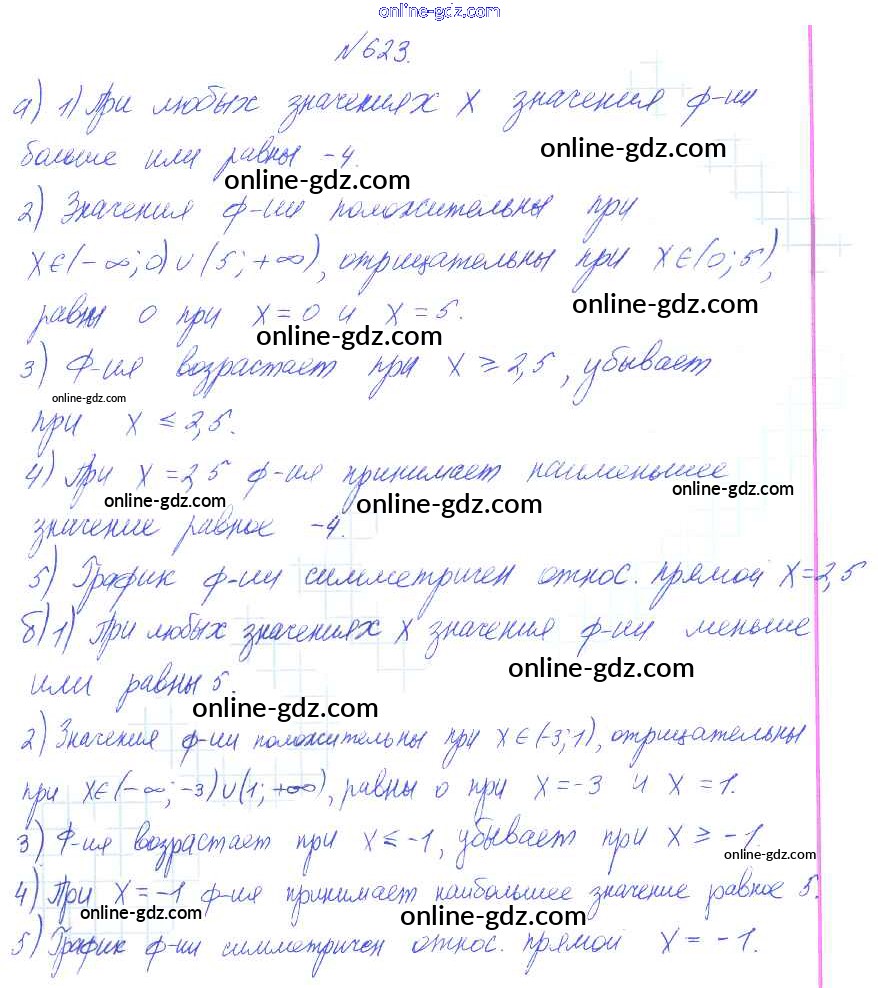 online-gdz.com
№623.
а) 1) При любых значениях x значения ф-ии
больше или равны -4.
online-gdz.com
online-gdz.com
2) Значения ф-ии положительны при
x∈(-∞;0)∪(5;+∞), отрицательны при x∈(0;5),
равны 0 при x=0 и x=5.
online-gdz.com
online-gdz.com
3) Ф-ия возрастает при x ≥ 2,5, убывает
online-gdz.com
при x ≤ 2,5.
4) При x=2,5 ф-ия принимает наименьшее
online-gdz.com
online-gdz.com
online-gdz.com
значение равное -4.
5) График ф-ии симметричен относ. прямой x=2,5
б) 1) При любых значениях x значения ф-ии меньше
online-gdz.com
или равны 5.
online-gdz.com
2) Значения ф-ии положительны при x∈(-3;1), отрицательны
при x∈(-∞;-3)∪(1;+∞), равны 0 при x=-3 и x=1.
3) Ф-ия возрастает при x≤-1, убывает при x ≥ -1.
online-gdz.com
4) При x=-1 ф-ия принимает наибольшее значение равное 5.
online-gdz.com
online-gdz.com
5) График ф-ии симметричен относ. прямой x=-1.